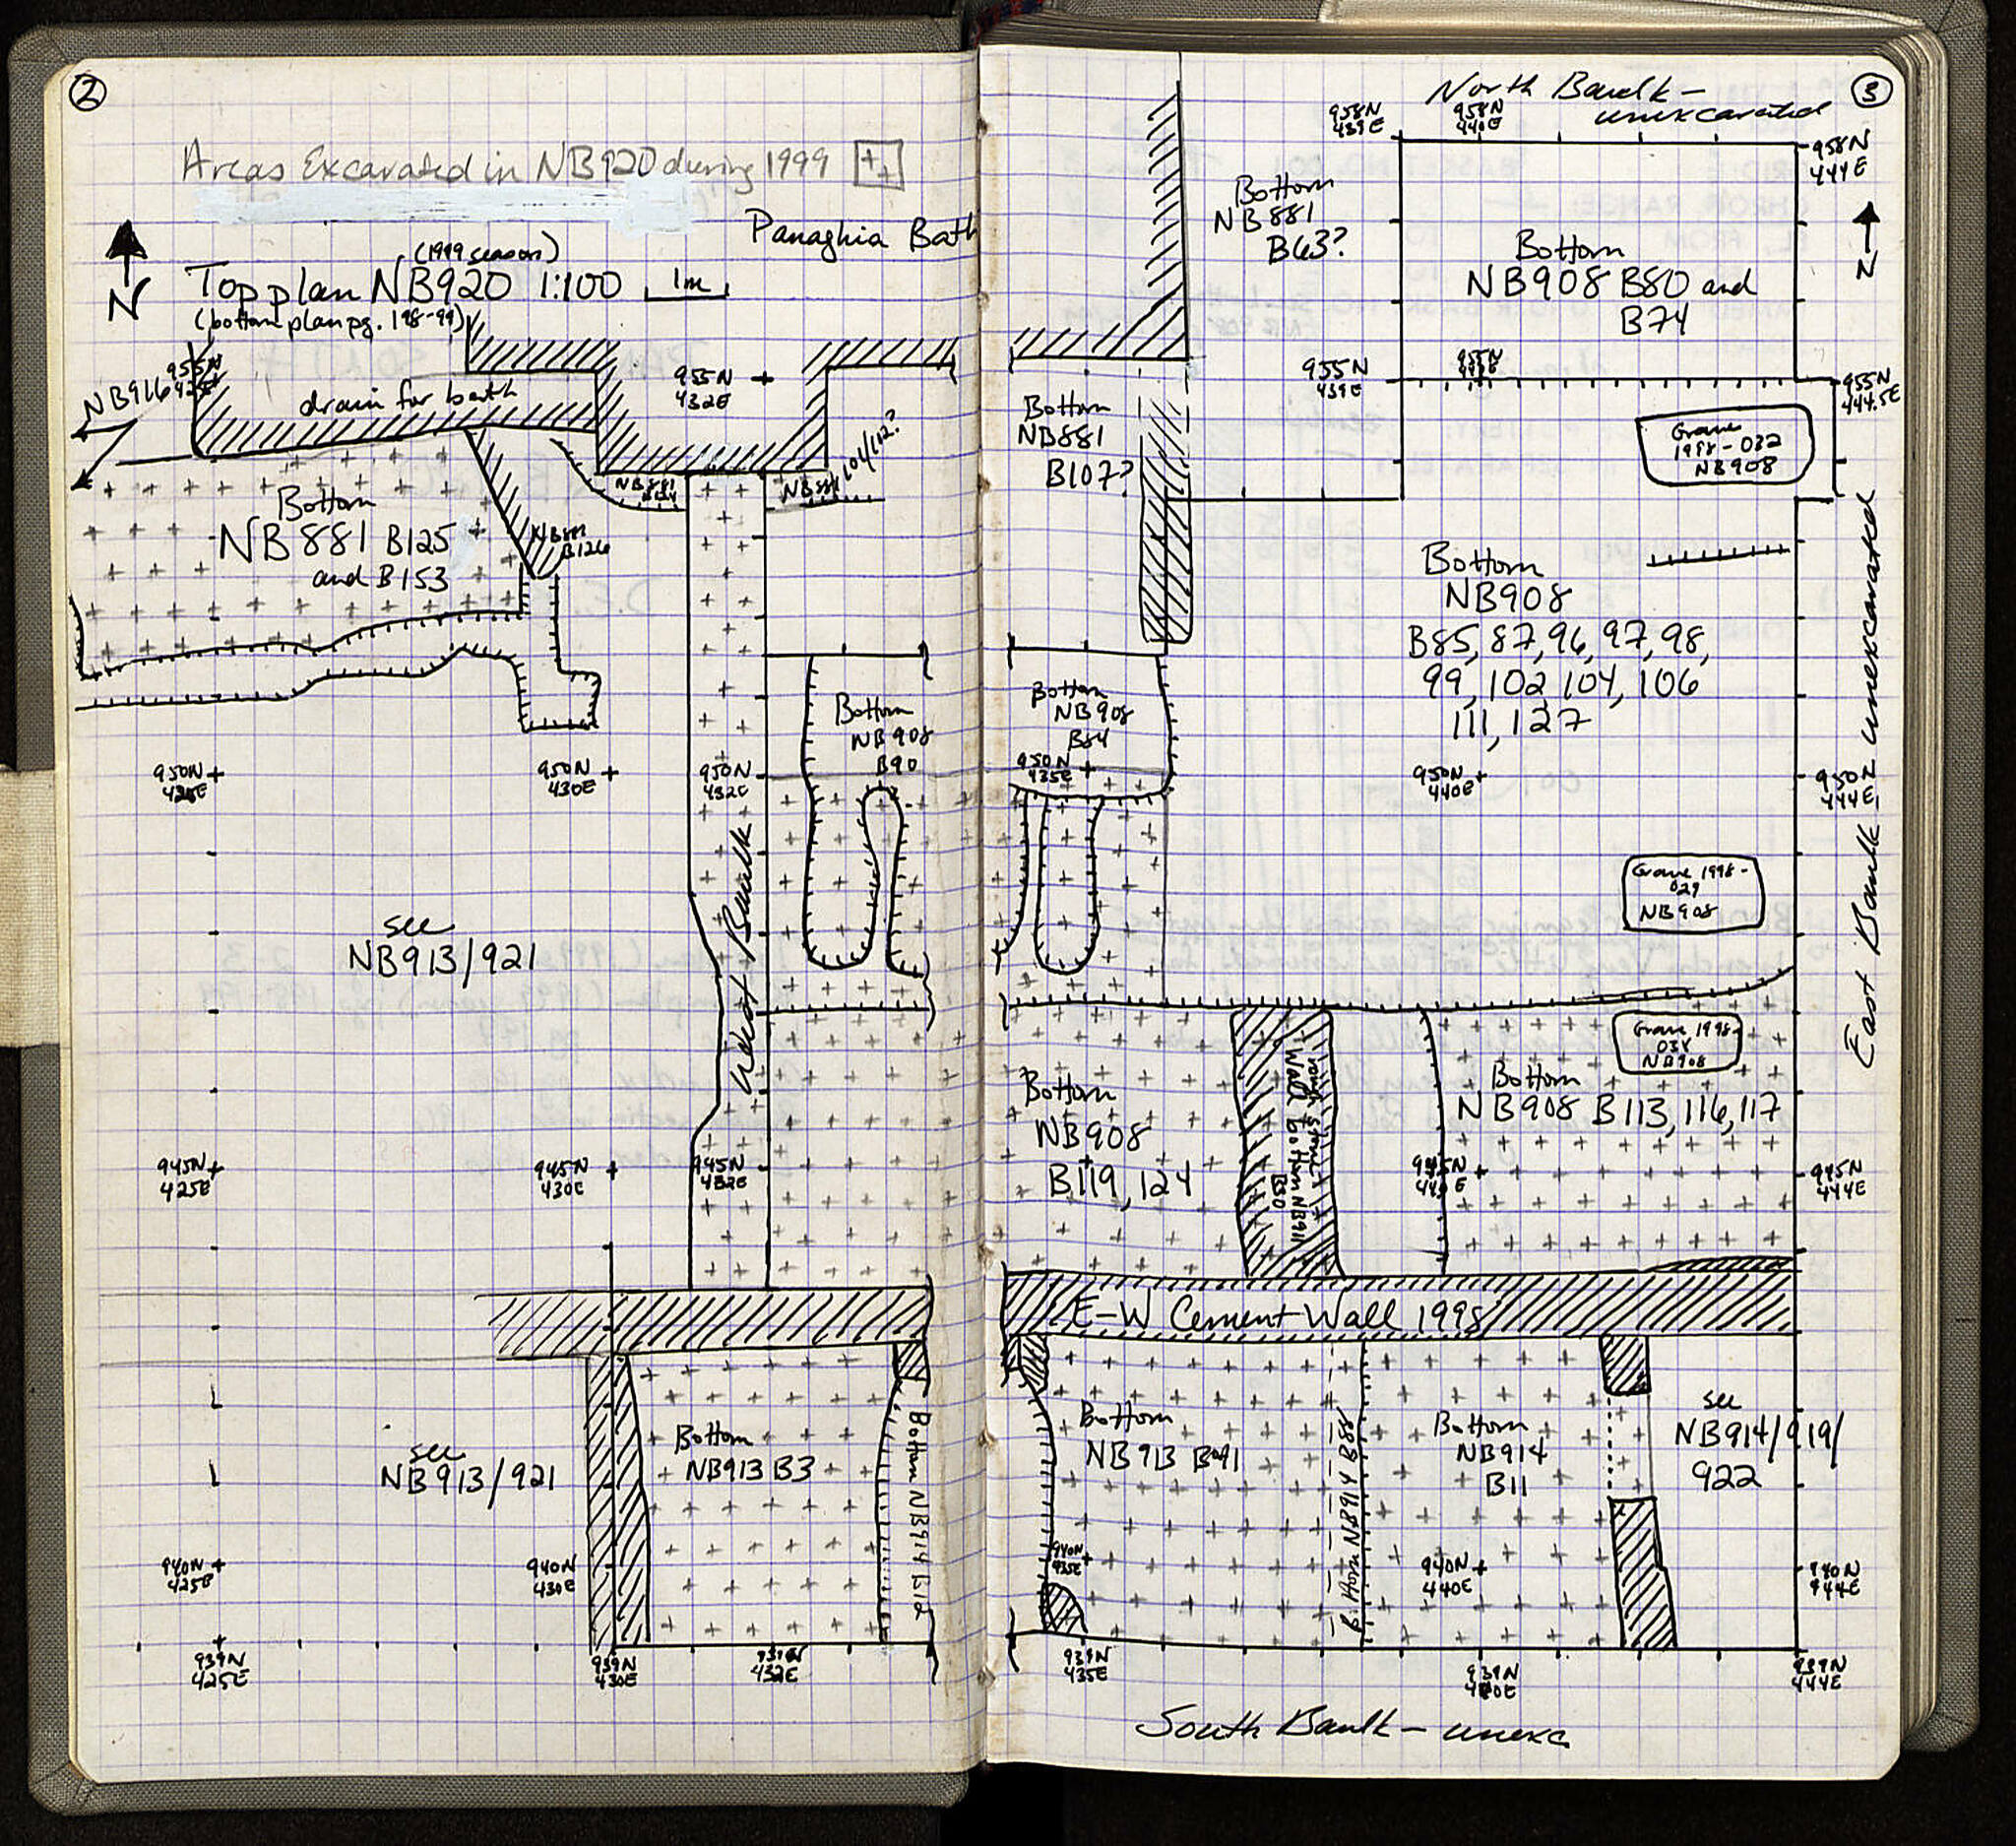 2
Areas Excavated in NB920 during 1999
Panaghia Bath
(1999 season)
N
Top plan NB920 1:100 1m
(bottom plan pg. 198-99)
NB916
955N
425E
drain for bath
955N
432E
104/112?
NB881
NB881
Bottom
NB881 B125
and B153
NB881
B126
Bottom
NB908
B90
950N
425E
950N
430E
950N
432E
West Baulk
see
NB913/921
945N
425E
945N
430E
945N
432E
see
NB913/921
Bottom
NB913 B3
Bottom NB914 B12
940N
425E
940N
430E
939N
425E
939N
430E
939N
432E
3
North Baulk -
unexcavated
958N
439E
958N
440E
958N
444E
N
Bottom
NB881
B63?
Bottom
NB908 B80 and
B74
955N
439E
955N
955N
444.5E
Bottom
NB881
B107?
Grave
1998-032
NB908
Bottom
NB908
B85, 87, 96, 97, 98,
99, 102, 104, 106
111, 127
Bottom
NB908
B84
950N
435E
950N
440E
950N
444E
East Baulk unexcavated
Grave 1998-
029
NB908
Grave 1998-
NB908
Bottom
NB908
B119, 124
rough stone
Wall bottom NB911
B30
Bottom
NB908 B113, 116, 117
945N
945N
444E
E-W Cement Wall 1998
Bottom
NB913
Bottom NB914 B88
Bottom
NB914
B11
see
NB914/919/
922
940N
435E
940N
440E
940N
444E
939N
435E
939N
440E
939N
444E
South Baulk - unexc